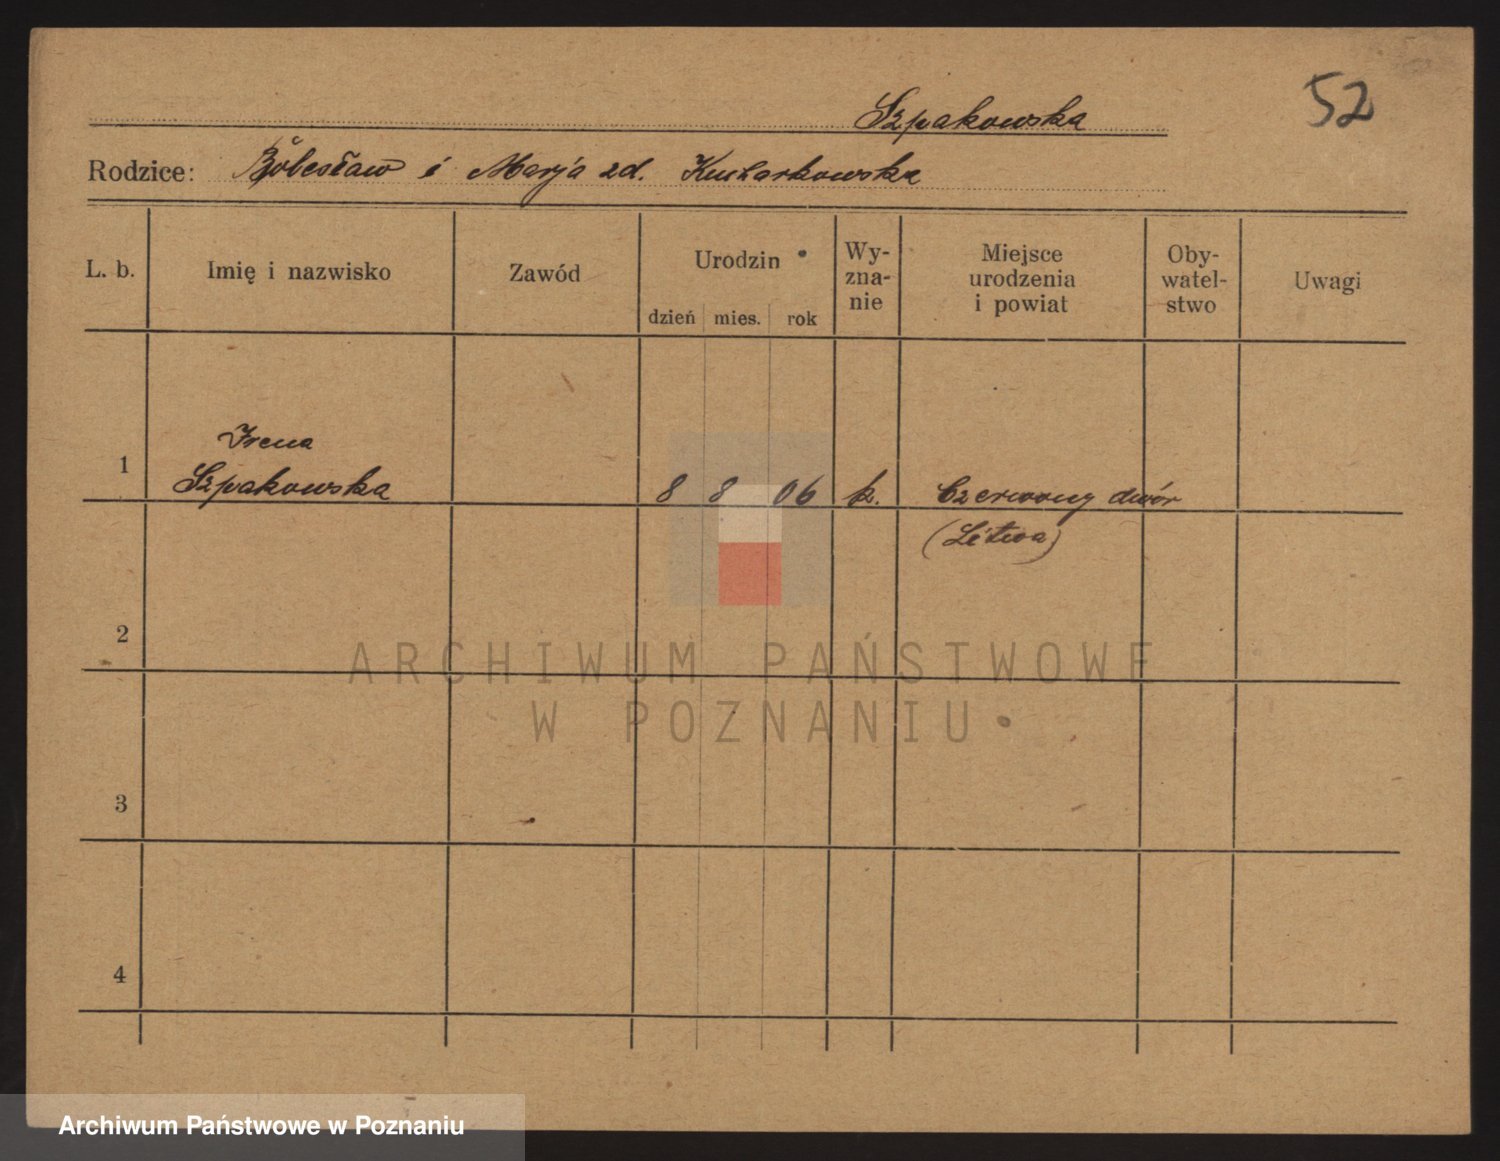 52
Szpakowska
Rodzice: Bolesław i Marja zd.
L. b. Imię i nazwisko Zawód Urodzin Wy- zna- nie Miejsce urodzenia i powiat Oby- watel- stwo Uwagi
dzień mies. rok
Irena
1 Szpakowska 8 8 06 k. Czerwony dwór
(Litwa)
2
ARCHIWUM PAŃSTWOWE
W POZNANIU
3
4
Archiwum Państwowe w Poznaniu